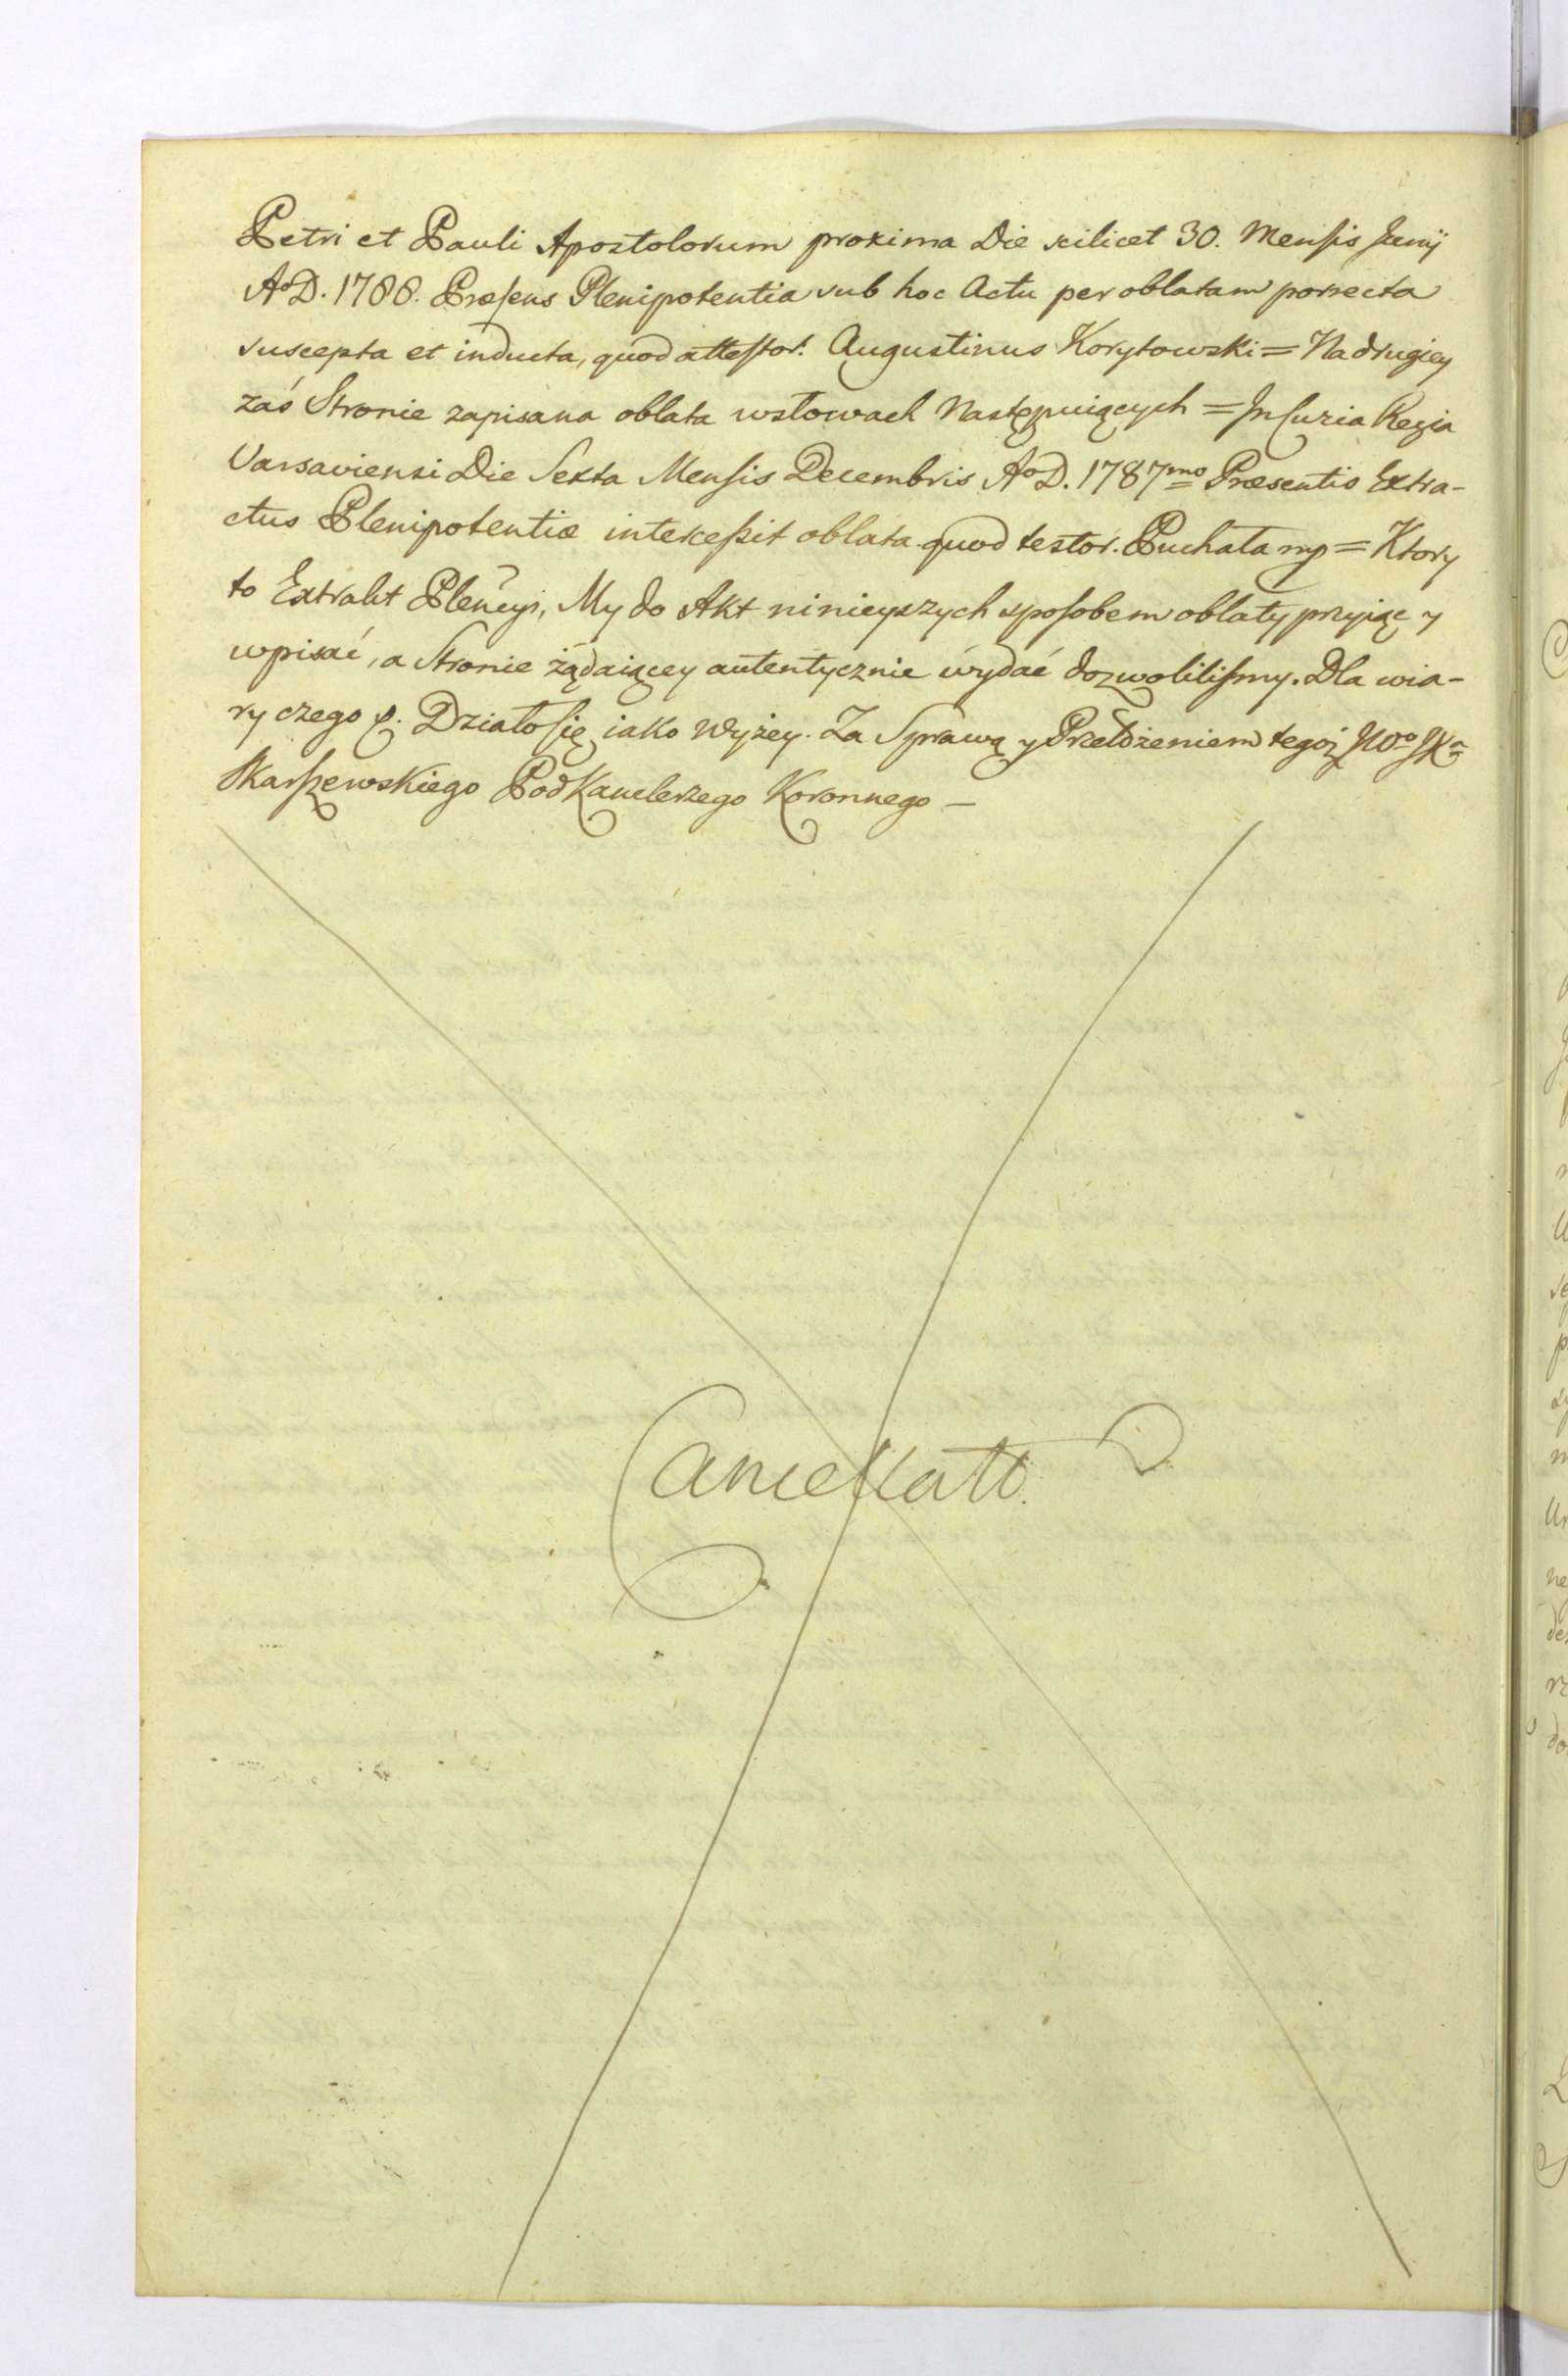 Petri et Pauli Apostolorum proxima Die scilicet 30. Mensis Junij
AoD. 1788. Præsens Plenipotentia sub hoc Actu per oblatam porrecta
suscepta et inducta, quod attestor. Augustinus Korytowski = Na drugiey
zaś Stronie zapisana oblata w słowach Następuiących = In Curia Regia
Varsaviensi Die Sexta Mensis Decembris AoD. 1787mo Præsentis Extra-
ctus Plenipotentiæ intercessit oblata quod testor. Puchała mp = Ktory
to Extrakt Plencyi, My do Akt ninieyszych sposobem oblaty przyiąc y
wpisać, a Stronie żądaiącey autentycznie wydać dozwolilismy. Dla wia-
ry czego &. Działo się iako wyżey. Za Sprawą y Przełożeniem tegoż
Skarszewskiego Podkanclerzego Koronnego —
Cancellatt.